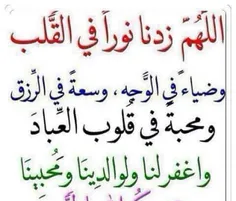 اللهُمّ زدنا نوراً في القَلب
وضياءً في الوَجه ، وسعةً في الرّزق
ومحبةً في قُلوب العِبادَ
واغفر لنا ولوالدينا ومُحبينَا